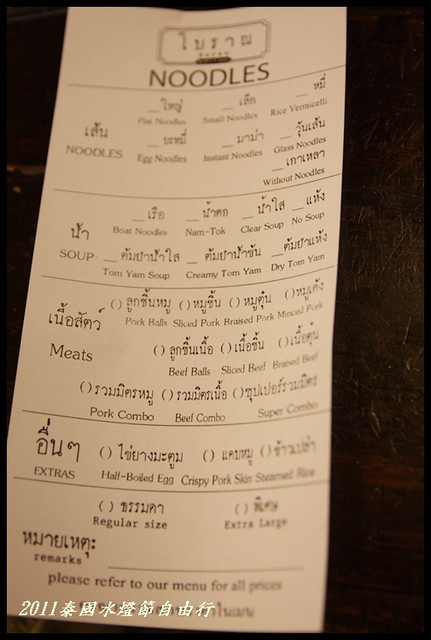 โบราณ
NOODLES
เส้น
NOODLES
__ ใหญ่ __ เล็ก __ หมี่
Flat Noodles Small Noodles Rice Vermicelli
__ บะหมี่ __ มาม่า __ วุ้นเส้น
Egg Noodles Instant Noodles Glass Noodles
__ เกาเหลา
Without Noodles
น้ำ
SOUP
__ เรือ __ น้ำตก __ น้ำใส __ แห้ง
Boat Noodles Nam-Tok Clear Soup No Soup
__ ต้มยำน้ำใส __ ต้มยำน้ำข้น __ ต้มยำแห้ง
Tom Yam Soup Creamy Tom Yam Dry Tom Yam
เนื้อสัตว์
Meats
( ) ลูกชิ้นหมู ( ) หมูชิ้น ( ) หมูตุ๋น ( ) หมูเด้ง
Pork Balls Sliced Pork Braised Pork Minced Pork
( ) ลูกชิ้นเนื้อ ( ) เนื้อชิ้น ( ) เนื้อตุ๋น
Beef Balls Sliced Beef Braised Beef
( ) รวมมิตรหมู ( ) รวมมิตรเนื้อ ( ) ซุปเปอร์รวมมิตร
Pork Combo Beef Combo Super Combo
อื่นๆ
EXTRAS
( ) ไข่ยางมะตูม ( ) แคบหมู ( ) ข้าวเปล่า
Half-Boiled Egg Crispy Pork Skin Steamed Rice
( ) ธรรมดา ( ) พิเศษ
Regular size Extra Large
หมายเหตุ:
remarks
please refer to our menu for all prices
2011泰國水燈節自由行